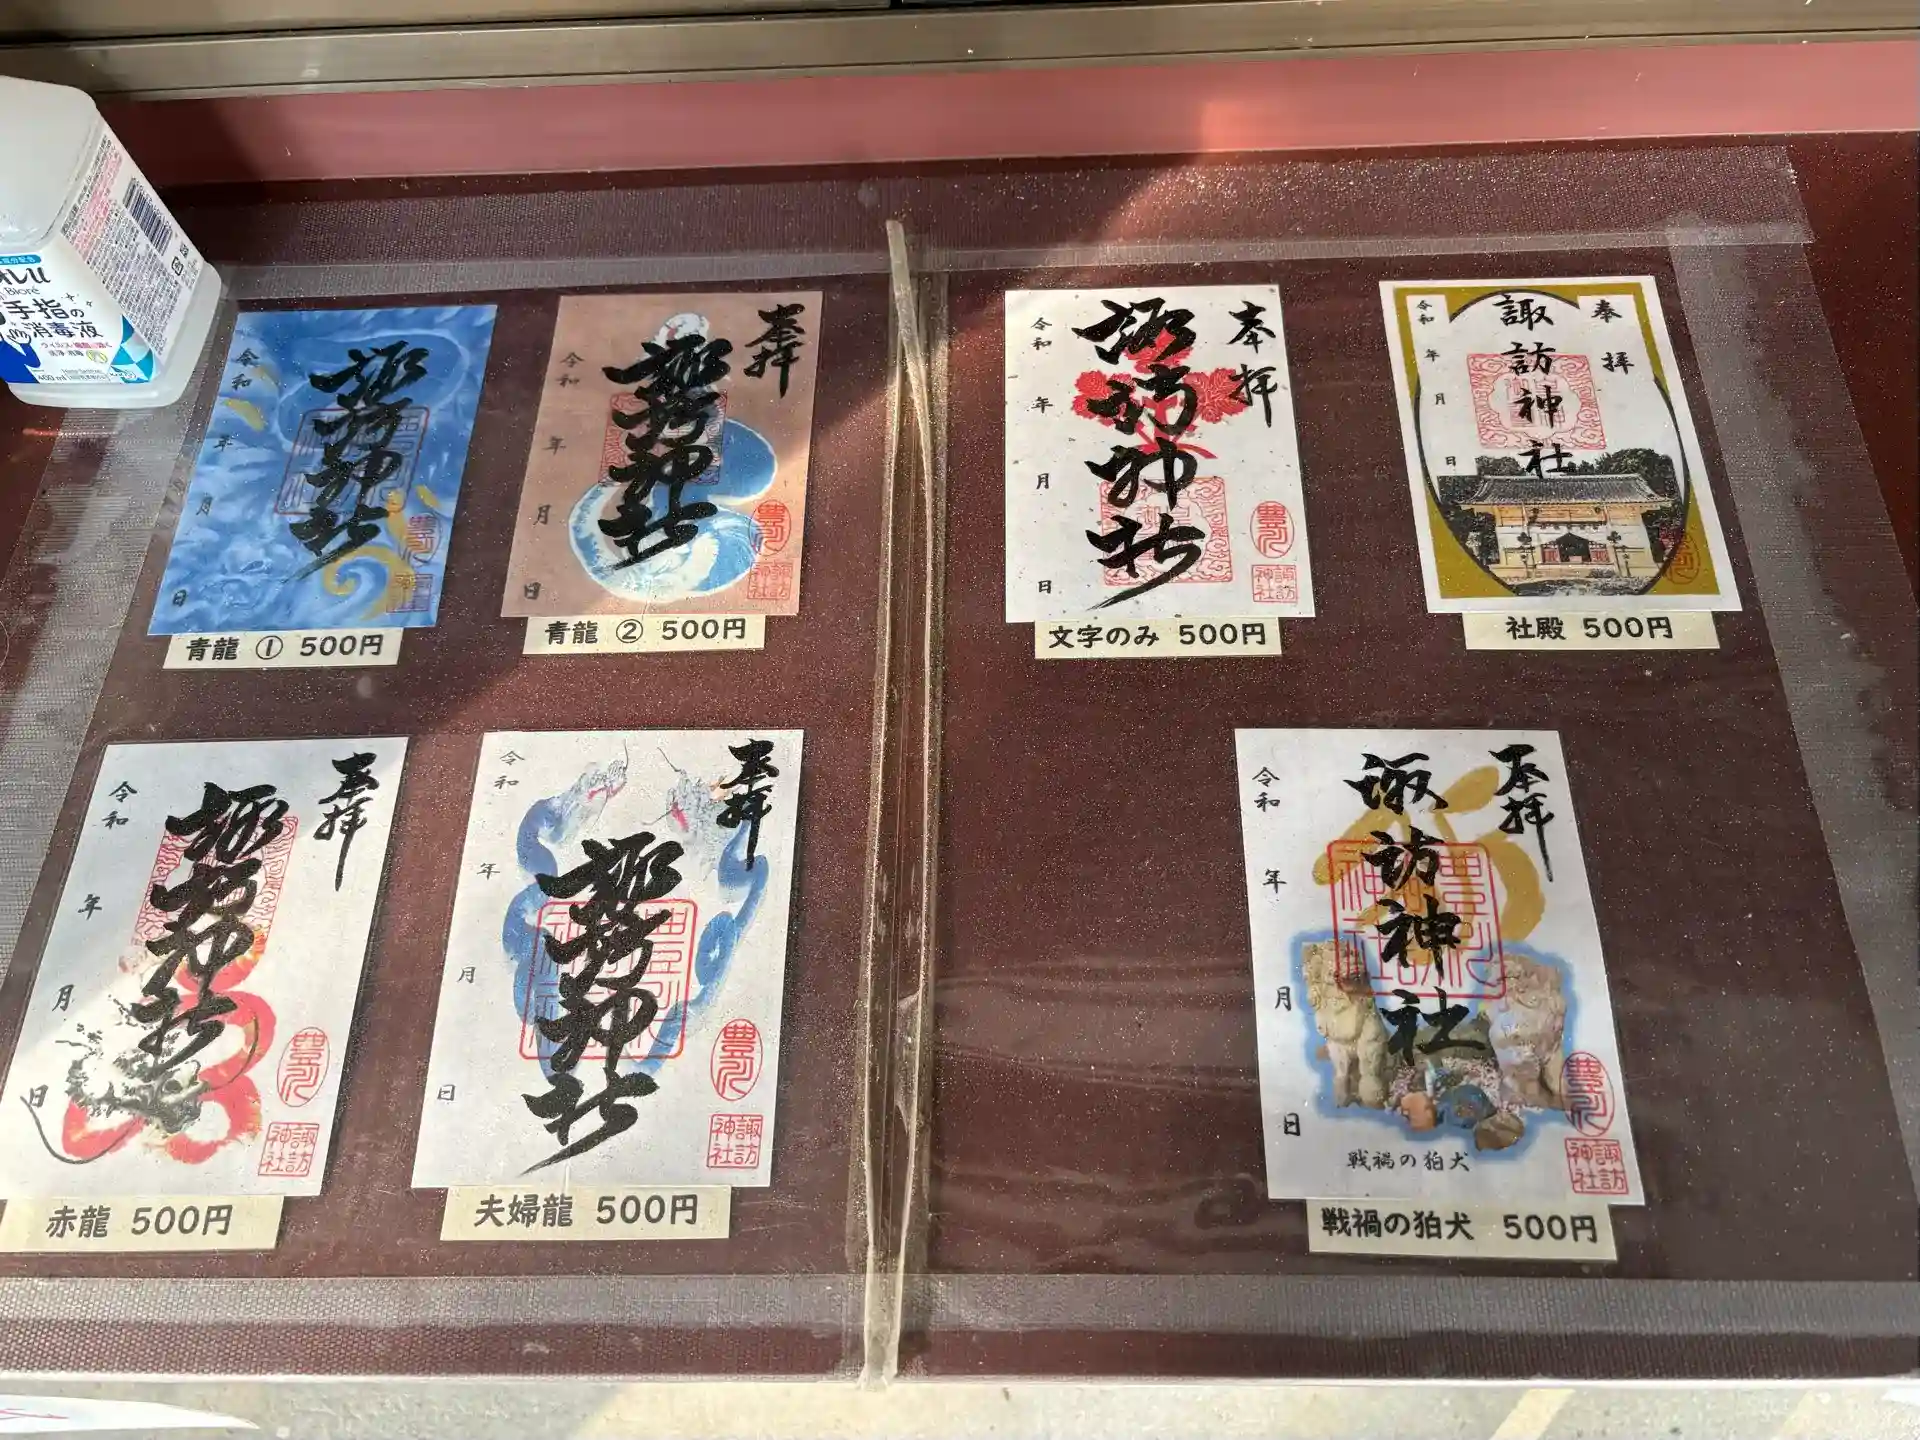 Bioré
手指の
消毒液
400ml
令和
年
月
日
諏訪神社
青龍 ① 500円
奉拝
令和
年
月
日
諏訪神社
豊川
諏訪神社
青龍 ② 500円
奉拝
令和
年
月
日
諏訪神社
豊川
諏訪神社
文字のみ 500円
奉拝
令和
年
月
日
諏訪神社
社殿 500円
奉拝
令和
年
月
日
諏訪神社
豊川
諏訪神社
赤龍 500円
奉拝
令和
年
月
日
諏訪神社
豊川
諏訪神社
夫婦龍 500円
奉拝
令和
年
月
日
諏訪神社
豊川
諏訪神社
戦禍の狛犬
戦禍の狛犬 500円